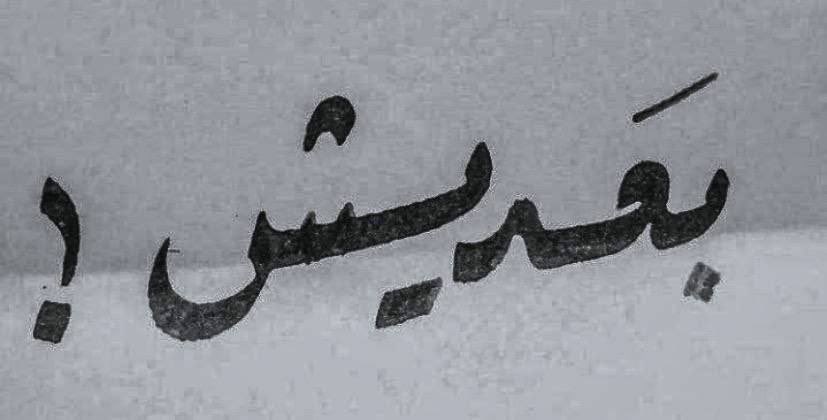 بَعديش !